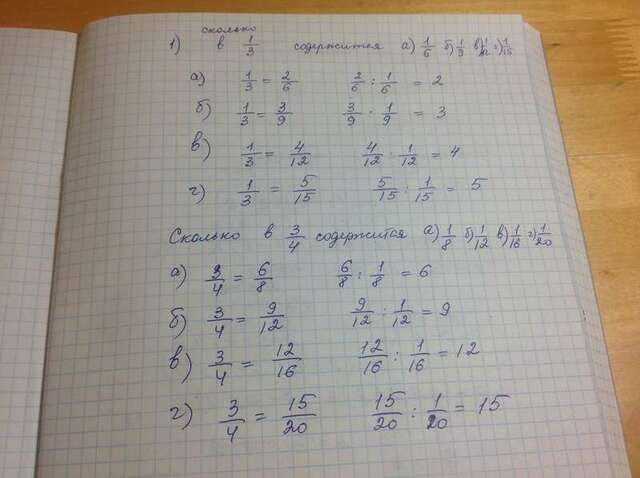 сколько
1) в 1/3 содержится а) 1/6 б) 1/9 в) 1/12 г) 1/15
а) 1/3 = 2/6 2/6 : 1/6 = 2
б) 1/3 = 3/9 3/9 : 1/9 = 3
в) 1/3 = 4/12 4/12 : 1/12 = 4
г) 1/3 = 5/15 5/15 : 1/15 = 5
Сколько в 3/4 содержится а) 1/8 б) 1/12 в) 1/16 г) 1/20
а) 3/4 = 6/8 6/8 : 1/8 = 6
б) 3/4 = 9/12 9/12 : 1/12 = 9
в) 3/4 = 12/16 12/16 : 1/16 = 12
г) 3/4 = 15/20 15/20 : 1/20 = 15